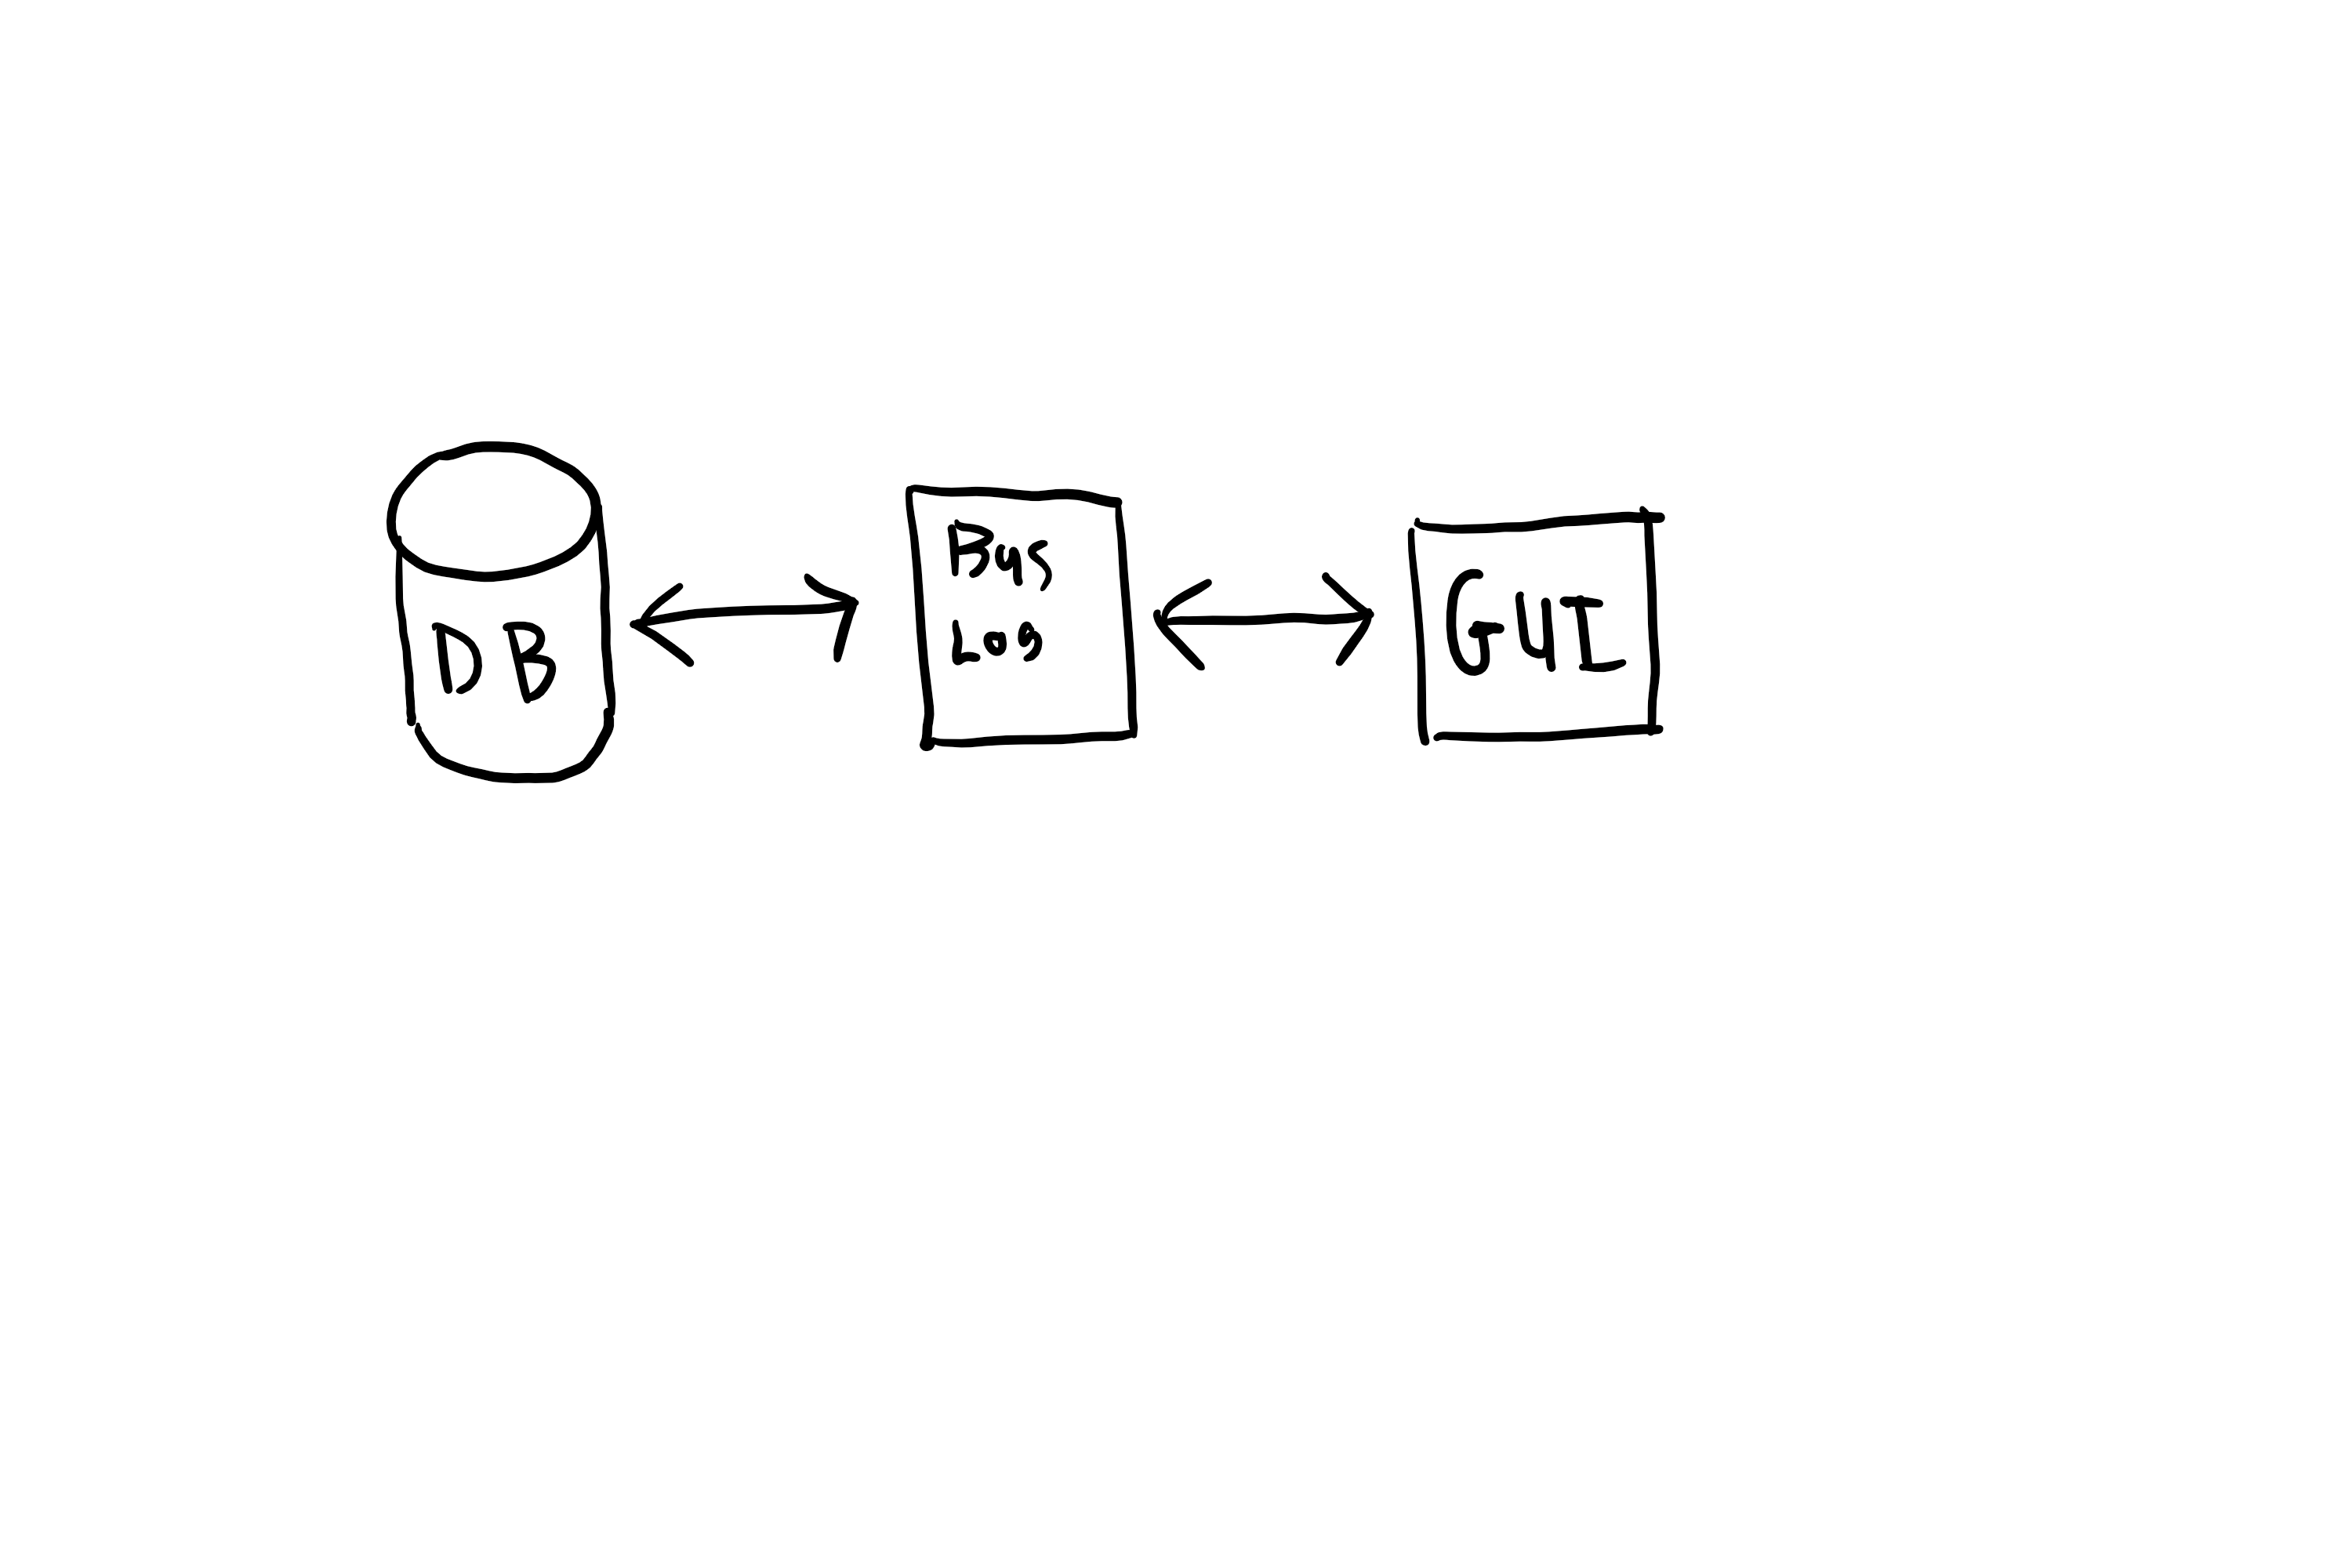 DB
Bus
Log
GUI